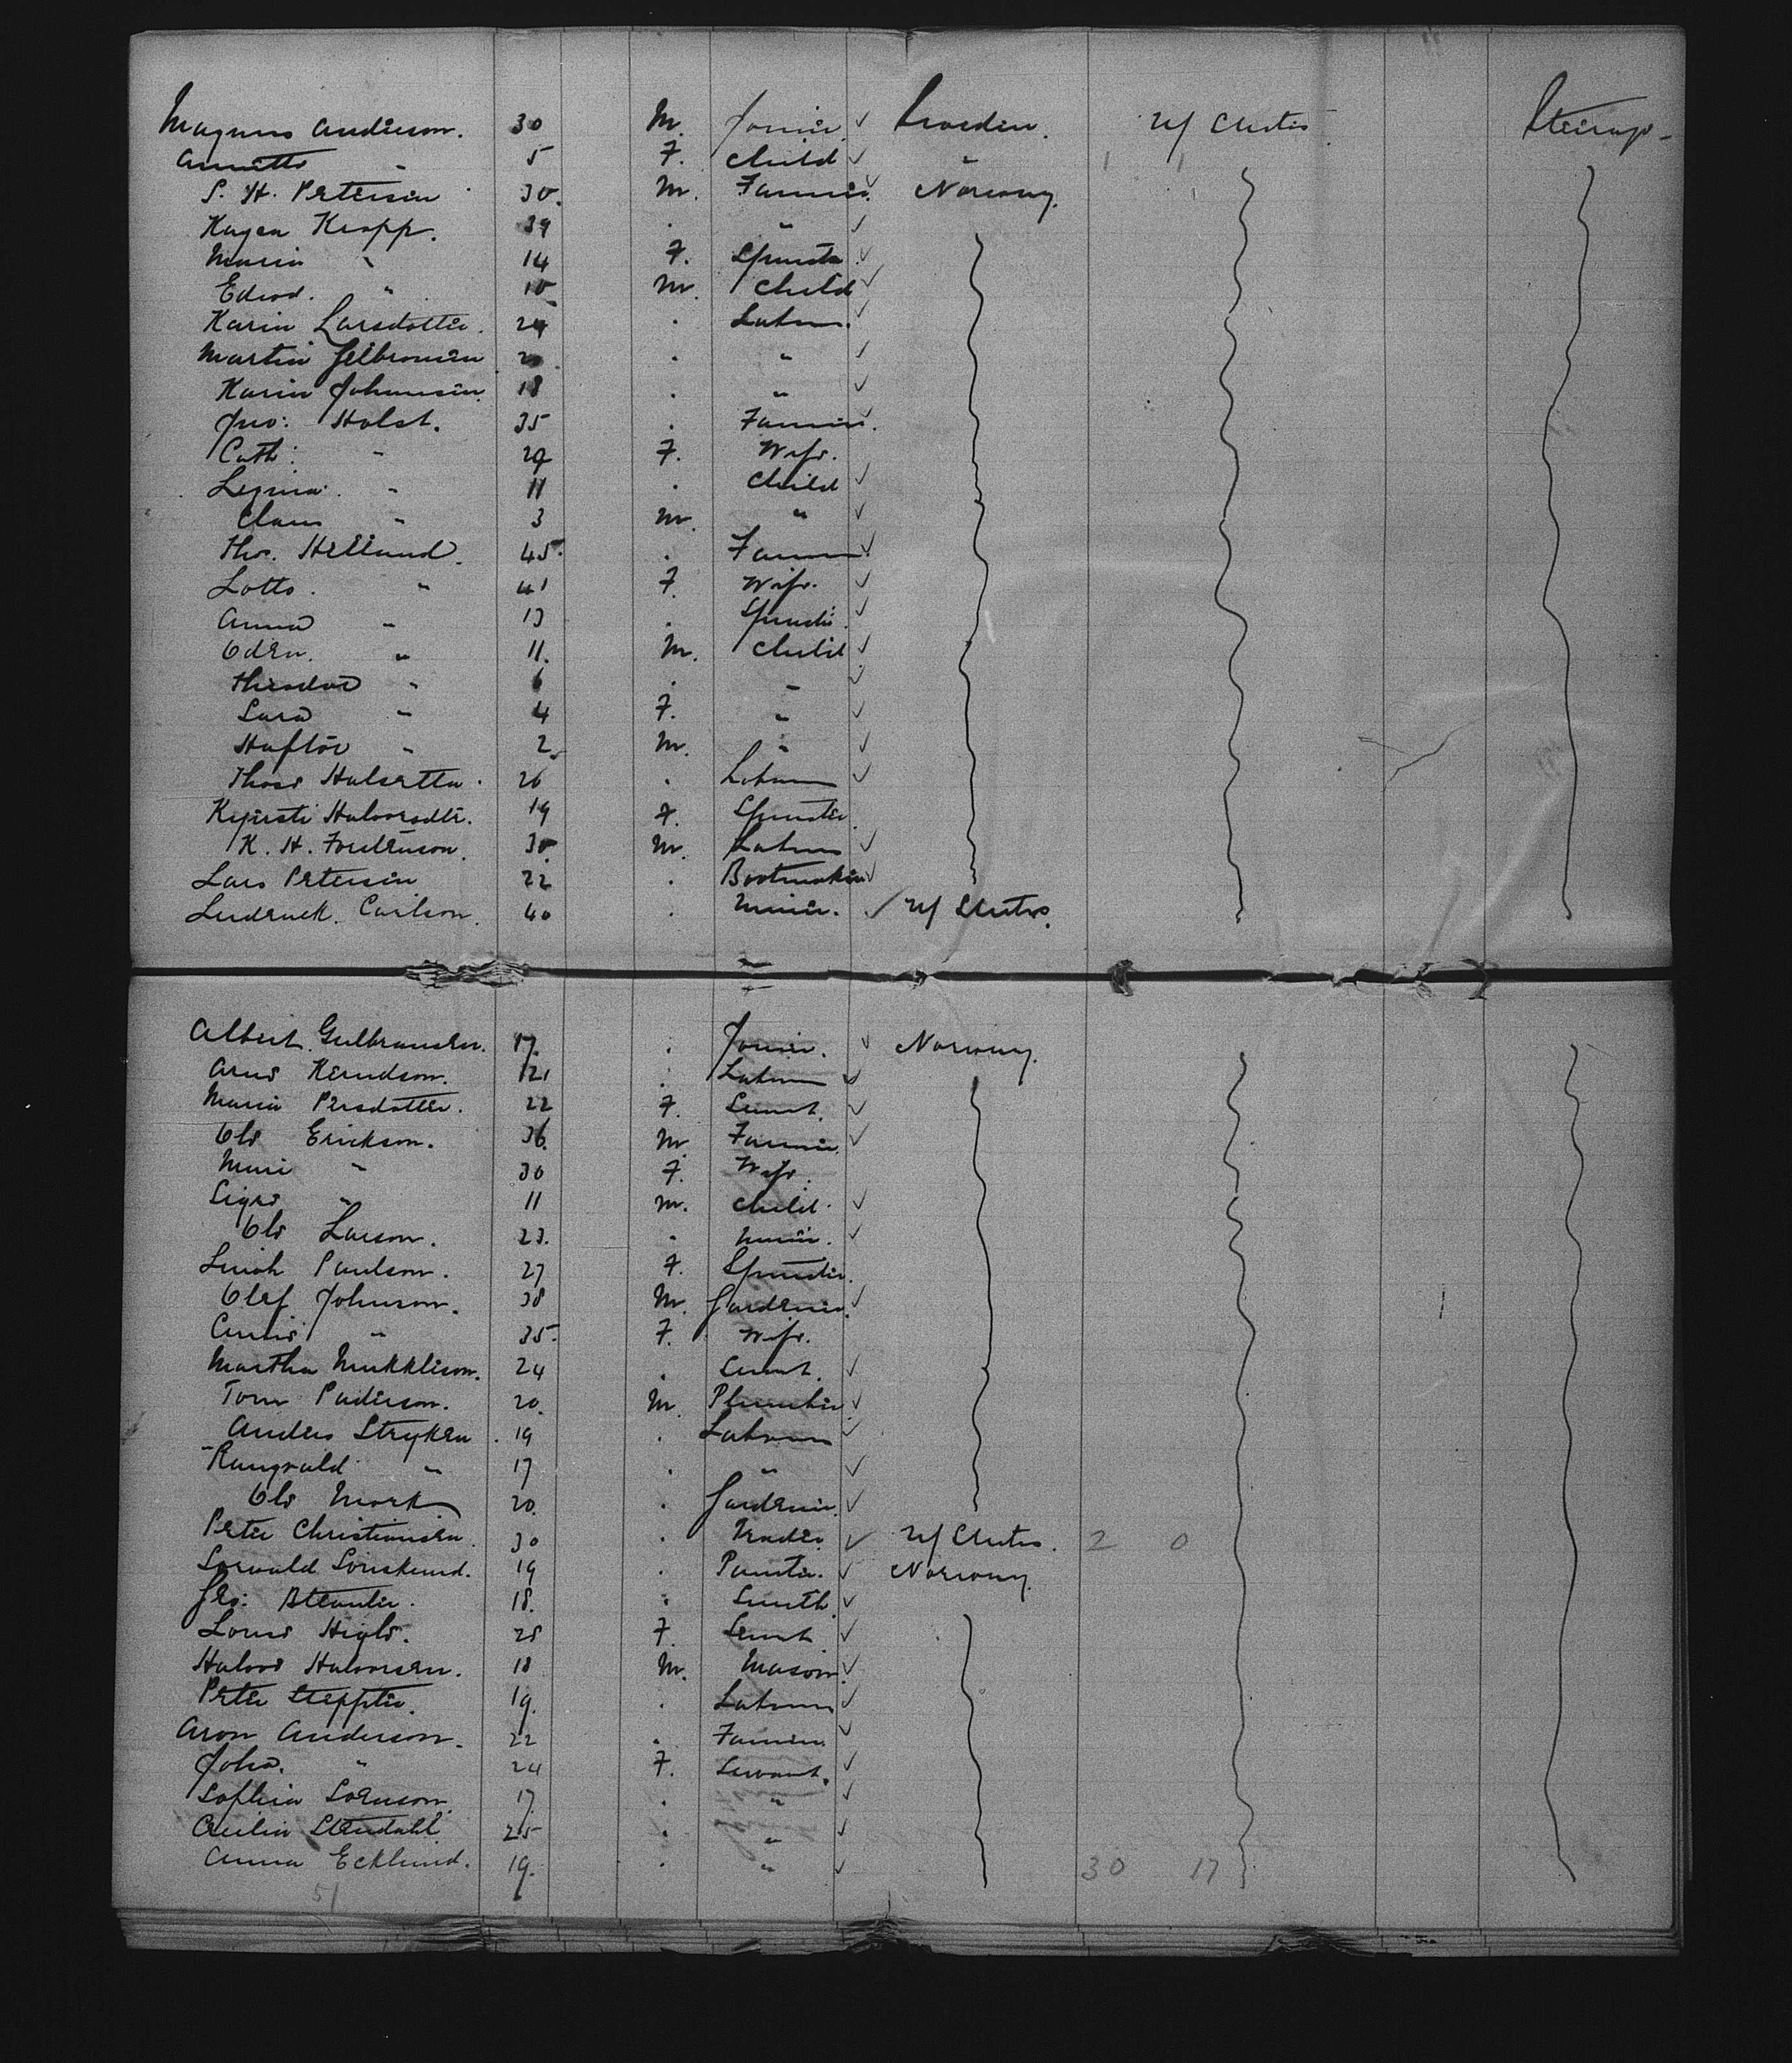 Magnus Anderson. 30 M. Joiner ✓ Sweden. U/ States Steerage
Annette " 5 F. Child ✓ " 1 1
S. H. Petersen 30. M. Farmer ✓ Norway.
Hagen Kropp. 39 . " ✓
Maria " 14 F. Spinster ✓
Edvd. " 10 M. Child ✓
Karin Larsdotter. 24 . Labour. ✓
Martin 20 . " ✓
Karin Johansen. 18 . " ✓
Jno: Holst. 35 . Farmer.
Cath: " 29 F. Wife.
" 11 . Child ✓
Claus " 3 M. " ✓
Thos. Helland. 45. . Farmer ✓
Lotte. " 41 F. Wife. ✓
Anna " 13 . Spinster. ✓
Oden. " 11. M. Child ✓
Theodor " 6 . " ✓
Sara " 4 F. " ✓
Haftor " 2 M. " ✓
26 . Labour ✓
Kjersti Halvorsdtr. 19 F. Spinster.
K. H. 30. M. Labour ✓
Lars Petersen 22 . Bootmaker ✓
Carlson. 40 . Miner. ✓ U/ States.
Albert Gulbransen. 17. . Joiner. ✓ Norway.
Arne Kerndson. 21 . Labour ✓
Maria Persdotter. 22 F. Servt. ✓
Ole Erickson. 36. M. Farmer. ✓
Mari " 30 F. Wife.
" 11 M. Child. ✓
Ole Larson. 23. . Miner. ✓
Paulson. 27 F. Spinster.
Olef Johnson. 38 M. Gardener. ✓
" 35. F. Wife.
Martha 24 . Servt. ✓
Tom Paderson. 20. M. Plumber ✓
Anders Stryken. 19 . Labour ✓
Rangvald " 17 . " ✓
Ole Mork 20. . Gardener. ✓
Peter Christiansen. 30 . Trader. ✓ U/ States. 2 0
19 . Painter. ✓ Norway.
Geo: 18. . Smith ✓
28 F. Servt ✓
Halvor Halvorsen. 18 M. Mason ✓
Peter 19. . Labour ✓
Aron Anderson. 22 . Farmer ✓
Joha. " 24 F. Servant. ✓
Sophia Sorenson. 17. . " ✓
Cecilia Stendahl 25 . " ✓
Anna Ecklund. 19. . " ✓ 30 17
51